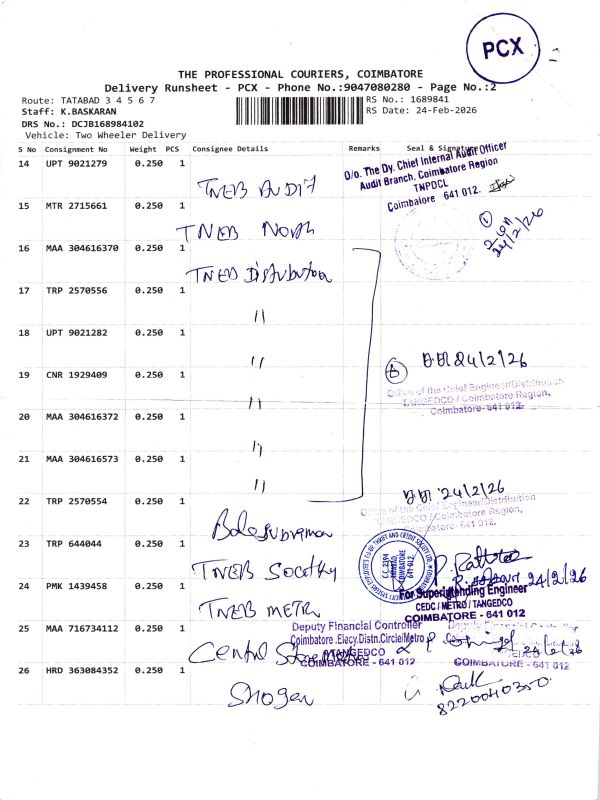 PCX
THE PROFESSIONAL COURIERS, COIMBATORE
Delivery Runsheet - PCX - Phone No.:9047080280 - Page No.:2
Route: TATABAD 3 4 5 6 7
RS No.: 1689841
Staff: K.BASKARAN
RS Date: 24-Feb-2026
DRS No.: DCJB168984102
Vehicle: Two Wheeler Delivery
S No Consignment No Weight PCS Consignee Details Remarks Seal & Signature
O/o. The Dy. Chief Internal Audit Officer
Audit Branch, Coimbatore Region
TNPDCL
Coimbatore 641 012.
14 UPT 9021279 0.250 1 TNEB AUDIT
15 MTR 2715661 0.250 1 TNEB North
24/2/26
16 MAA 304616370 0.250 1 TNEB Distribution
17 TRP 2570556 0.250 1 "
18 UPT 9021282 0.250 1 "
24/2/26
19 CNR 1929409 0.250 1 "
Office of the Chief Engineer/Distribution
TANGEDCO / Coimbatore Region,
Coimbatore- 641 012.
20 MAA 304616372 0.250 1 "
21 MAA 304616573 0.250 1 "
24/2/26
22 TRP 2570554 0.250 1 Balasubraman
Office of the Chief Engineer/Distribution
TANGEDCO / Coimbatore Region,
Coimbatore- 641 012.
23 TRP 644044 0.250 1 TNEB Socothy
24/2/26
For Superintending Engineer
CEDC / METRO / TANGEDCO
COIMBATORE - 641 012
24 PMK 1439458 0.250 1 TNEB METR
25 MAA 716734112 0.250 1 Central Store
Deputy Financial Controller
Coimbatore .Elacy.Distn.Circle/Metro
TANGEDCO
COIMBATORE - 641 012
24/2/26
COIMBATORE - 641 012
26 HRD 363084352 0.250 1 Shogan
8220040350